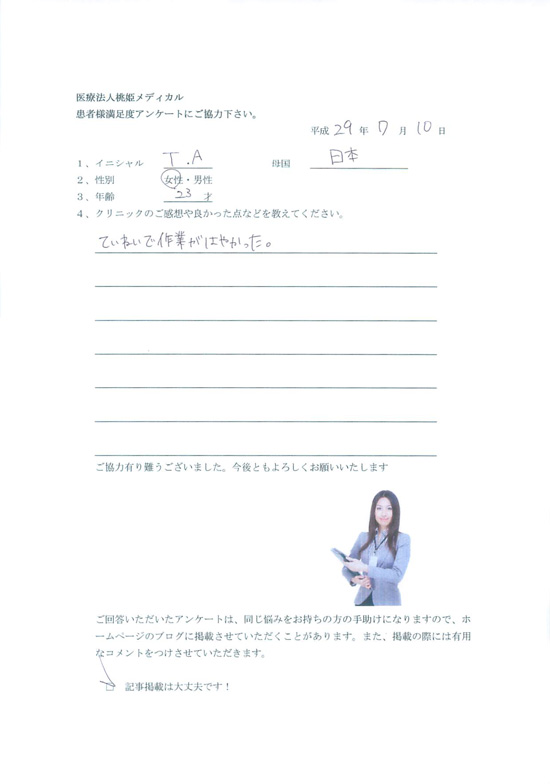 医療法人桃姫メディカル
患者様満足度アンケートにご協力下さい。
平成 29 年 7 月 10 日
1、イニシャル T.A 母国 日本
2、性別 女性・男性
3、年齢 23 才
4、クリニックのご感想や良かった点などを教えてください。
ていねいで作業がはやかった。
ご協力有り難うございました。今後ともよろしくお願いいたします
ご回答いただいたアンケートは、同じ悩みをお持ちの方の手助けになりますので、ホ
ームページのブログに掲載させていただくことがあります。また、掲載の際には有用
なコメントをつけさせていただきます。
□ 記事掲載は大丈夫です！